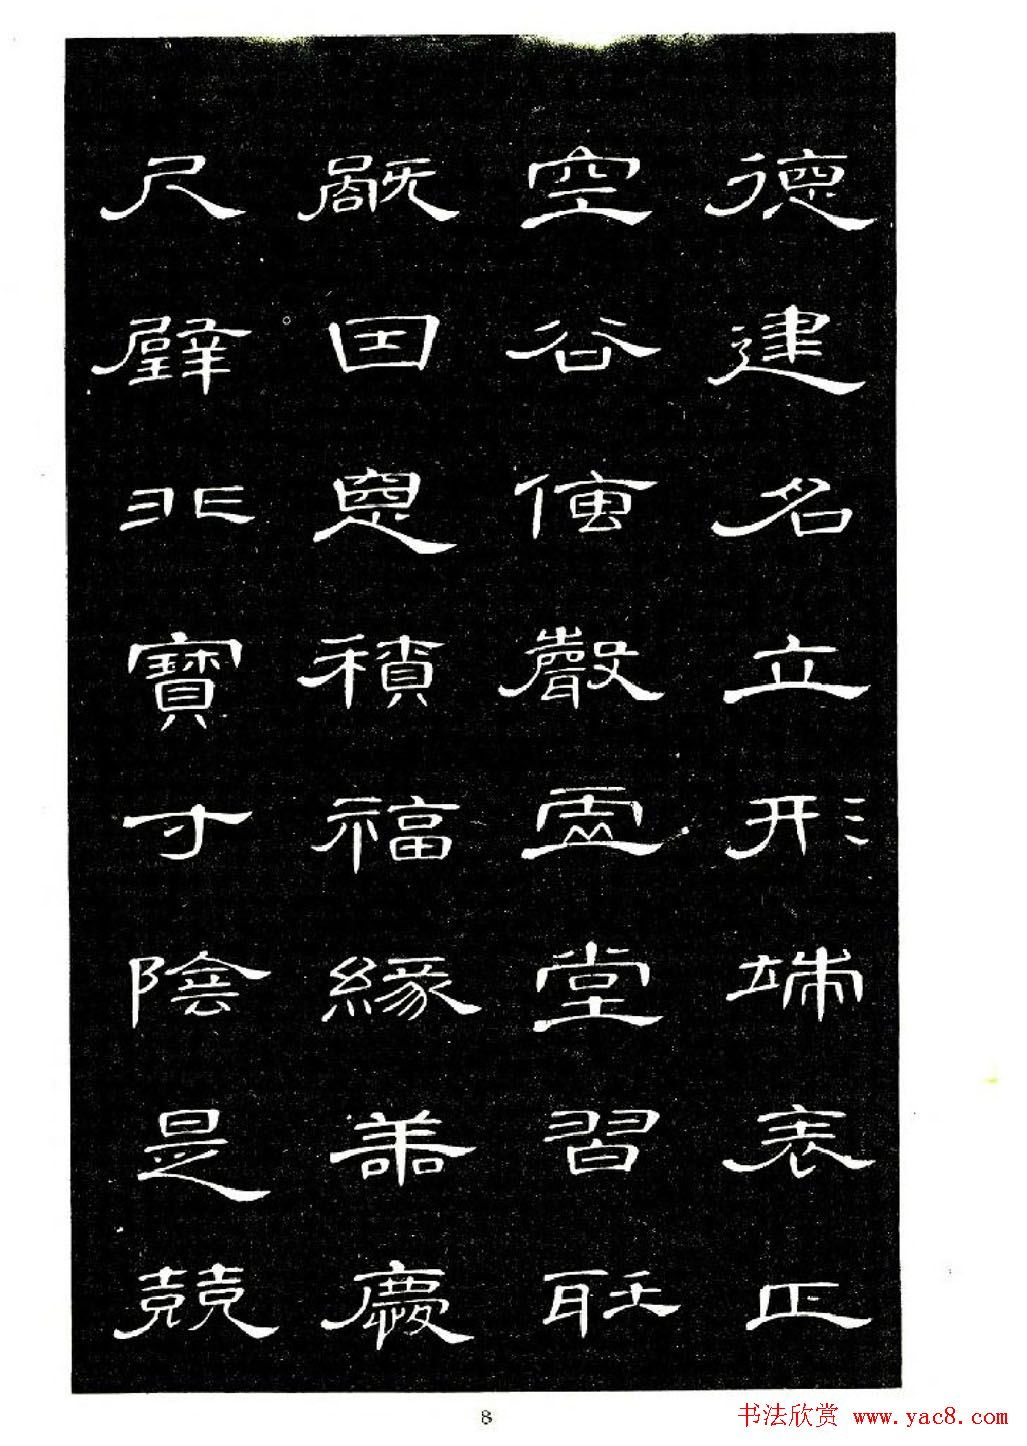 德建名立形端表正
空谷傳聲虛堂習聽
旤因惡積福緣善慶
尺璧非寶寸陰是競
8
书法欣赏 www.yac8.com